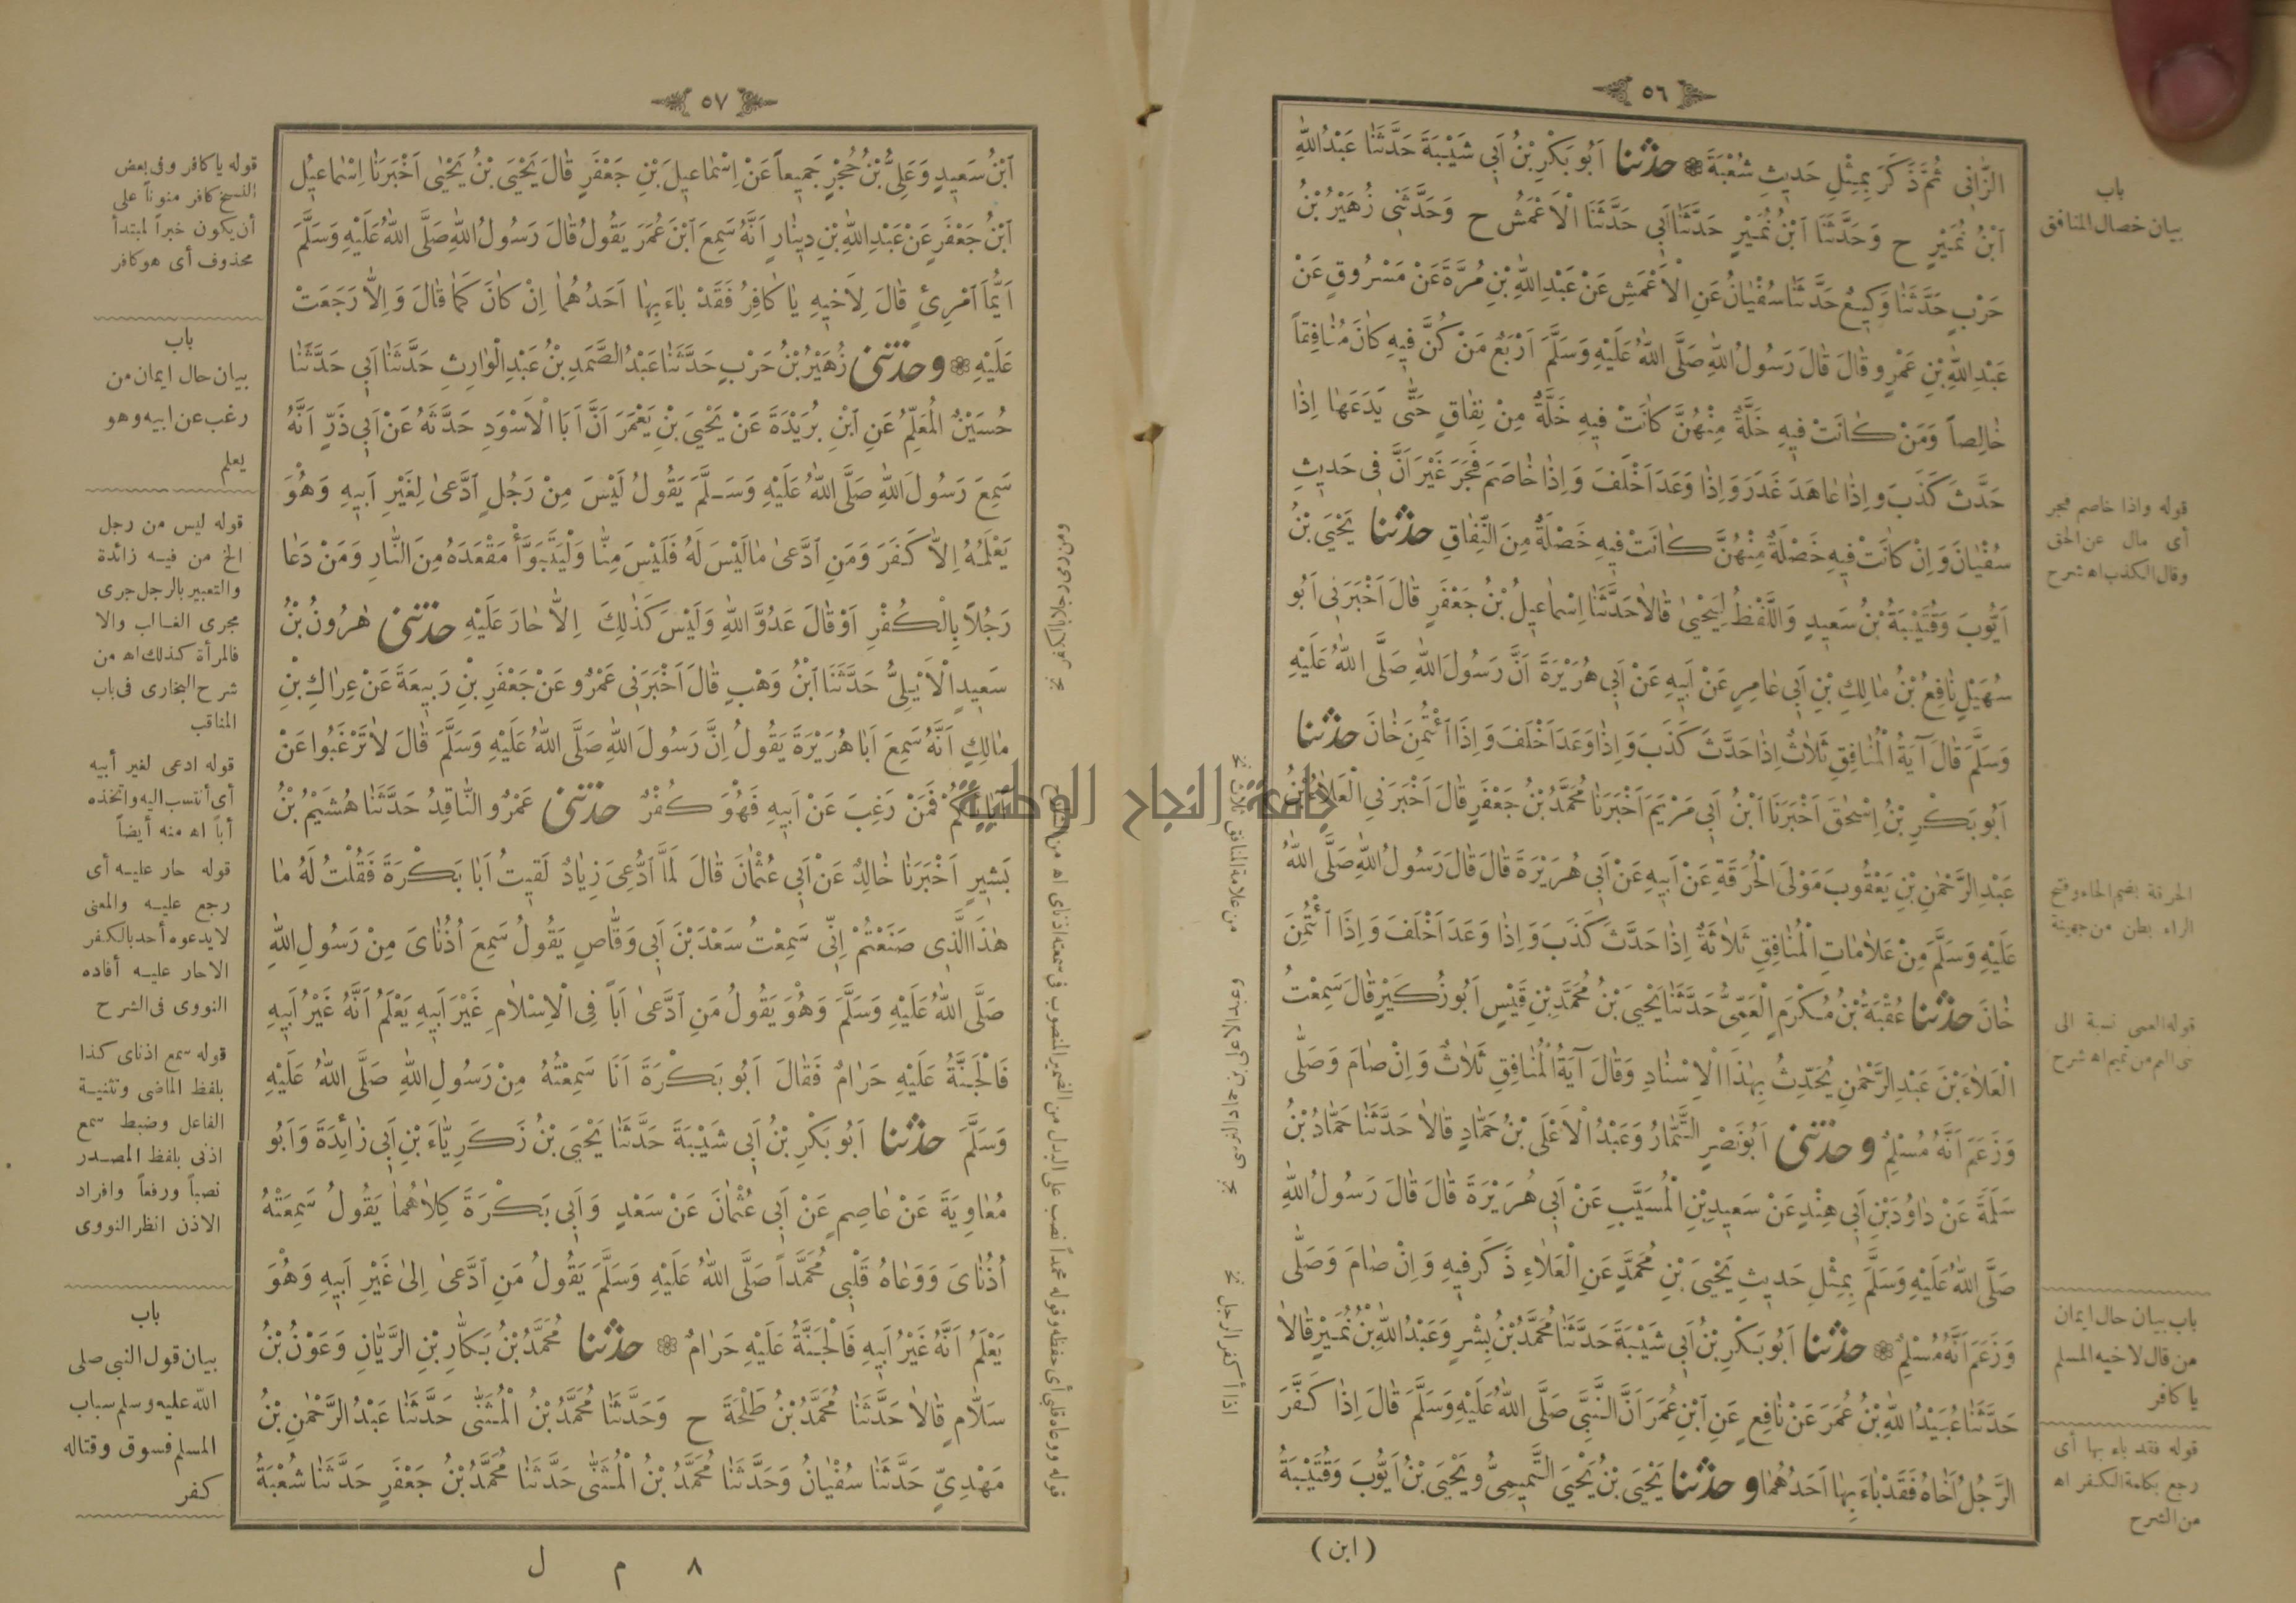 ٥٦
الزَّانِي ثُمَّ ذَكَرَ بِمِثْلِ حَدِيثِ شُعْبَةَ ❁ حدثنا اَبُو بَكْرِ بْنُ اَبِي شَيْبَةَ حَدَّثَنَا عَبْدُ اللّٰهِ
ابْنُ نُمَيْرٍ ح وَحَدَّثَنَا ابْنُ نُمَيْرٍ حَدَّثَنَا اَبِي حَدَّثَنَا الْاَعْمَشُ ح وَحَدَّثَنِي زُهَيْرُ بْنُ
حَرْبٍ حَدَّثَنَا وَكِيعٌ حَدَّثَنَا سُفْيَانُ عَنِ الْاَعْمَشِ عَنْ عَبْدِ اللّٰهِ بْنِ مُرَّةَ عَنْ مَسْرُوقٍ عَنْ
عَبْدِ اللّٰهِ بْنِ عَمْرٍو قَالَ قَالَ رَسُولُ اللّٰهِ صَلَّى اللّٰهُ عَلَيْهِ وَسَلَّمَ اَرْبَعٌ مَنْ كُنَّ فِيهِ كَانَ مُنَافِقاً
خَالِصاً وَمَنْ كَانَتْ فِيهِ خَلَّةٌ مِنْهُنَّ كَانَتْ فِيهِ خَلَّةٌ مِنْ نِفَاقٍ حَتَّى يَدَعَهَا اِذَا
حَدَّثَ كَذَبَ وَاِذَا عَاهَدَ غَدَرَ وَاِذَا وَعَدَ اَخْلَفَ وَاِذَا خَاصَمَ فَجَرَ غَيْرَ اَنَّ فِي حَدِيثِ
سُفْيَانَ وَاِنْ كَانَتْ فِيهِ خَصْلَةٌ مِنْهُنَّ كَانَتْ فِيهِ خَصْلَةٌ مِنَ النِّفَاقِ حدثنا يَحْيَى بْنُ
اَيُّوبَ وَقُتَيْبَةُ بْنُ سَعِيدٍ وَاللَّفْظُ لِيَحْيَى قَالَا حَدَّثَنَا اِسْمَاعِيلُ بْنُ جَعْفَرٍ قَالَ اَخْبَرَنِي اَبُو
سُهَيْلٍ نَافِعُ بْنُ مَالِكِ بْنِ اَبِي عَامِرٍ عَنْ اَبِيهِ عَنْ اَبِي هُرَيْرَةَ اَنَّ رَسُولَ اللّٰهِ صَلَّى اللّٰهُ عَلَيْهِ
وَسَلَّمَ قَالَ آيَةُ الْمُنَافِقِ ثَلَاثٌ اِذَا حَدَّثَ كَذَبَ وَاِذَا وَعَدَ اَخْلَفَ وَاِذَا اؤْتُمِنَ خَانَ حدثنا
اَبُو بَكْرِ بْنُ اِسْحٰقَ اَخْبَرَنَا ابْنُ اَبِي مَرْيَمَ اَخْبَرَنَا مُحَمَّدُ بْنُ جَعْفَرٍ قَالَ اَخْبَرَنِي الْعَلَاءُ بْنُ
عَبْدِ الرَّحْمٰنِ بْنِ يَعْقُوبَ مَوْلَى الْحُرَقَةِ عَنْ اَبِيهِ عَنْ اَبِي هُرَيْرَةَ قَالَ قَالَ رَسُولُ اللّٰهِ صَلَّى اللّٰهُ
عَلَيْهِ وَسَلَّمَ مِنْ عَلَامَاتِ الْمُنَافِقِ ثَلَاثَةٌ اِذَا حَدَّثَ كَذَبَ وَاِذَا وَعَدَ اَخْلَفَ وَاِذَا اؤْتُمِنَ
خَانَ حدثنا عُقْبَةُ بْنُ مُكْرَمٍ الْعَمِّيُّ حَدَّثَنَا يَحْيَى بْنُ مُحَمَّدِ بْنِ قَيْسٍ اَبُو زُكَيْرٍ قَالَ سَمِعْتُ
الْعَلَاءَ بْنَ عَبْدِ الرَّحْمٰنِ يُحَدِّثُ بِهٰذَا الْاِسْنَادِ وَقَالَ آيَةُ الْمُنَافِقِ ثَلَاثٌ وَاِنْ صَامَ وَصَلَّى
وَزَعَمَ اَنَّهُ مُسْلِمٌ وحدثنى اَبُو نَصْرٍ التَّمَّارُ وَعَبْدُ الْاَعْلَى بْنُ حَمَّادٍ قَالَا حَدَّثَنَا حَمَّادُ بْنُ
سَلَمَةَ عَنْ دَاوُدَ بْنِ اَبِي هِنْدٍ عَنْ سَعِيدِ بْنِ الْمُسَيَّبِ عَنْ اَبِي هُرَيْرَةَ قَالَ قَالَ رَسُولُ اللّٰهِ
صَلَّى اللّٰهُ عَلَيْهِ وَسَلَّمَ بِمِثْلِ حَدِيثِ يَحْيَى بْنِ مُحَمَّدٍ عَنِ الْعَلَاءِ ذَكَرَ فِيهِ وَاِنْ صَامَ وَصَلَّى
وَزَعَمَ اَنَّهُ مُسْلِمٌ ❁ حدثنا اَبُو بَكْرِ بْنُ اَبِي شَيْبَةَ حَدَّثَنَا مُحَمَّدُ بْنُ بِشْرٍ وَعَبْدُ اللّٰهِ بْنُ نُمَيْرٍ قَالَا
حَدَّثَنَا عُبَيْدُ اللّٰهِ بْنُ عُمَرَ عَنْ نَافِعٍ عَنِ ابْنِ عُمَرَ اَنَّ النَّبِيَّ صَلَّى اللّٰهُ عَلَيْهِ وَسَلَّمَ قَالَ اِذَا كَفَّرَ
الرَّجُلُ اَخَاهُ فَقَدْ بَاءَ بِهَا اَحَدُهُمَا وحدثنا يَحْيَى بْنُ يَحْيَى التَّمِيمِيُّ وَيَحْيَى بْنُ اَيُّوبَ وَقُتَيْبَةُ
(ابن)
باب
بيان خصال المنافق
قوله واذا خاصم فجر
أى مال عن الحق
وقال الكذب اه شرح
الحرقة بضم الحاء وفتح
الراء بطن من جهينة
قوله العمى نسبة الى
بنى العم من تميم اه شرح
باب بيان حال ايمان
من قال لاخيه المسلم
يا كافر
قوله فقد باء بها أى
رجع بكلمة الكفر اه
من الشرح
من علامة المنافق ثلاث نخ
اذا أكفر الرجل نخ
جامعة النجاح الوطنية
٥٧
ابْنُ سَعِيدٍ وَعَلِيُّ بْنُ حُجْرٍ جَمِيعاً عَنْ اِسْمَاعِيلَ بْنِ جَعْفَرٍ قَالَ يَحْيَى بْنُ يَحْيَى اَخْبَرَنَا اِسْمَاعِيلُ
ابْنُ جَعْفَرٍ عَنْ عَبْدِ اللّٰهِ بْنِ دِينَارٍ اَنَّهُ سَمِعَ ابْنَ عُمَرَ يَقُولُ قَالَ رَسُولُ اللّٰهِ صَلَّى اللّٰهُ عَلَيْهِ وَسَلَّمَ
اَيُّمَا امْرِئٍ قَالَ لِاَخِيهِ يَا كَافِرُ فَقَدْ بَاءَ بِهَا اَحَدُهُمَا اِنْ كَانَ كَمَا قَالَ وَاِلَّا رَجَعَتْ
عَلَيْهِ ❁ وحدثنى زُهَيْرُ بْنُ حَرْبٍ حَدَّثَنَا عَبْدُ الصَّمَدِ بْنُ عَبْدِ الْوَارِثِ حَدَّثَنَا اَبِي حَدَّثَنَا
حُسَيْنٌ الْمُعَلِّمُ عَنِ ابْنِ بُرَيْدَةَ عَنْ يَحْيَى بْنِ يَعْمَرَ اَنَّ اَبَا الْاَسْوَدِ حَدَّثَهُ عَنْ اَبِي ذَرٍّ اَنَّهُ
سَمِعَ رَسُولَ اللّٰهِ صَلَّى اللّٰهُ عَلَيْهِ وَسَلَّمَ يَقُولُ لَيْسَ مِنْ رَجُلٍ ادَّعَى لِغَيْرِ اَبِيهِ وَهُوَ
يَعْلَمُهُ اِلَّا كَفَرَ وَمَنِ ادَّعَى مَا لَيْسَ لَهُ فَلَيْسَ مِنَّا وَلْيَتَبَوَّأْ مَقْعَدَهُ مِنَ النَّارِ وَمَنْ دَعَا
رَجُلاً بِالْكُفْرِ اَوْ قَالَ عَدُوَّ اللّٰهِ وَلَيْسَ كَذٰلِكَ اِلَّا حَارَ عَلَيْهِ حدثنى هٰرُونُ بْنُ
سَعِيدٍ الْاَيْلِيُّ حَدَّثَنَا ابْنُ وَهْبٍ قَالَ اَخْبَرَنِي عَمْرٌو عَنْ جَعْفَرِ بْنِ رَبِيعَةَ عَنْ عِرَاكِ بْنِ
مَالِكٍ اَنَّهُ سَمِعَ اَبَا هُرَيْرَةَ يَقُولُ اِنَّ رَسُولَ اللّٰهِ صَلَّى اللّٰهُ عَلَيْهِ وَسَلَّمَ قَالَ لَا تَرْغَبُوا عَنْ
آبَائِكُمْ فَمَنْ رَغِبَ عَنْ اَبِيهِ فَهُوَ كُفْرٌ حدثنى عَمْرٌو النَّاقِدُ حَدَّثَنَا هُشَيْمُ بْنُ
بَشِيرٍ اَخْبَرَنَا خَالِدٌ عَنْ اَبِي عُثْمَانَ قَالَ لَمَّا ادُّعِيَ زِيَادٌ لَقِيتُ اَبَا بَكْرَةَ فَقُلْتُ لَهُ مَا
هٰذَا الَّذِي صَنَعْتُمْ اِنِّي سَمِعْتُ سَعْدَ بْنَ اَبِي وَقَّاصٍ يَقُولُ سَمِعَ اُذُنَايَ مِنْ رَسُولِ اللّٰهِ
صَلَّى اللّٰهُ عَلَيْهِ وَسَلَّمَ وَهُوَ يَقُولُ مَنِ ادَّعَى اَباً فِي الْاِسْلَامِ غَيْرَ اَبِيهِ يَعْلَمُ اَنَّهُ غَيْرُ اَبِيهِ
فَالْجَنَّةُ عَلَيْهِ حَرَامٌ فَقَالَ اَبُو بَكْرَةَ اَنَا سَمِعْتُهُ مِنْ رَسُولِ اللّٰهِ صَلَّى اللّٰهُ عَلَيْهِ
وَسَلَّمَ حدثنا اَبُو بَكْرِ بْنُ اَبِي شَيْبَةَ حَدَّثَنَا يَحْيَى بْنُ زَكَرِيَّاءَ بْنِ اَبِي زَائِدَةَ وَاَبُو
مُعَاوِيَةَ عَنْ عَاصِمٍ عَنْ اَبِي عُثْمَانَ عَنْ سَعْدٍ وَاَبِي بَكْرَةَ كِلَاهُمَا يَقُولُ سَمِعَتْهُ
اُذُنَايَ وَوَعَاهُ قَلْبِي مُحَمَّداً صَلَّى اللّٰهُ عَلَيْهِ وَسَلَّمَ يَقُولُ مَنِ ادَّعَى اِلَى غَيْرِ اَبِيهِ وَهُوَ
يَعْلَمُ اَنَّهُ غَيْرُ اَبِيهِ فَالْجَنَّةُ عَلَيْهِ حَرَامٌ ❁ حدثنا مُحَمَّدُ بْنُ بَكَّارِ بْنِ الرَّيَّانِ وَعَوْنُ بْنُ
سَلَّامٍ قَالَا حَدَّثَنَا مُحَمَّدُ بْنُ طَلْحَةَ ح وَحَدَّثَنَا مُحَمَّدُ بْنُ الْمُثَنَّى حَدَّثَنَا عَبْدُ الرَّحْمٰنِ بْنُ
مَهْدِيٍّ حَدَّثَنَا سُفْيَانُ وَحَدَّثَنَا مُحَمَّدُ بْنُ الْمُثَنَّى حَدَّثَنَا مُحَمَّدُ بْنُ جَعْفَرٍ حَدَّثَنَا شُعْبَةُ
٨ م ل
قوله يا كافر وفى بعض
النسخ كافر منوناً على
أن يكون خبراً لمبتدأ
محذوف أى هو كافر
باب
بيان حال ايمان من
رغب عن ابيه وهو
يعلم
قوله ليس من رجل
الخ من فيه زائدة
والتعبير بالرجل جرى
مجرى الغالب والا
فالمرأة كذلك اه من
شرح البخارى فى باب
المناقب
قوله ادعى لغير أبيه
أى أنتسب اليه واتخذه
أباً اه منه أيضاً
قوله حار عليه أى
رجع عليه والمعنى
لا يدعوه أحد بالكفر
الا حار عليه أفاده
النووى فى الشرح
قوله سمع اذناى كذا
بلفظ الماضى وتثنية
الفاعل وضبط سمع
اذنى بلفظ المصدر
نصباً ورفعاً وافراد
الاذن انظر النووى
باب
بيان قول النبى صلى
الله عليه وسلم سباب
المسلم فسوق وقتاله
كفر
قوله ووعاه قلبى أى حفظه وقوله محمداً نصب على البدل من الضمير المنصوب فى سمعته اذناى اه من الشارح